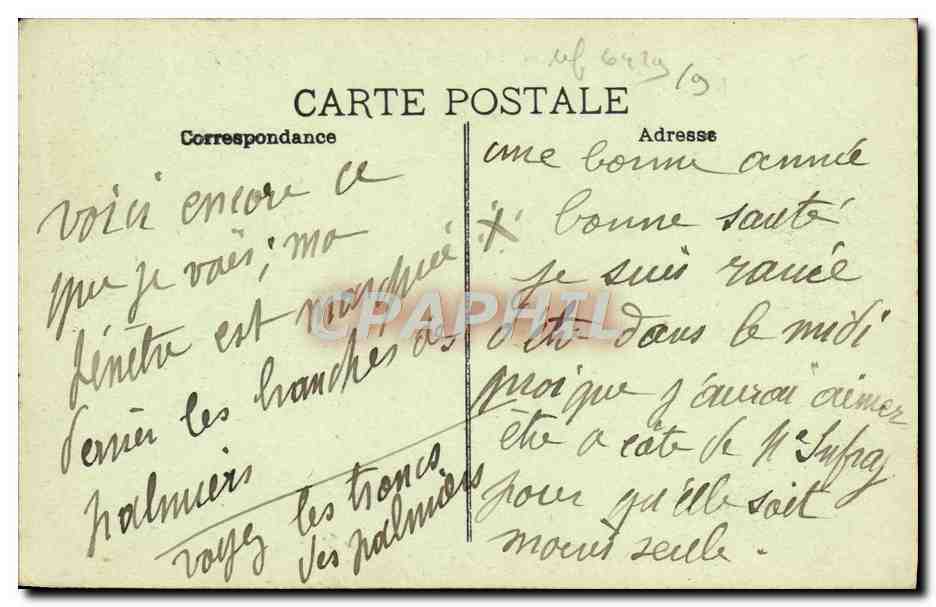 CARTE POSTALE
Correspondance
Adresse
voici encore ce
que je vois, ma
fénétre est marquée X
derrier les branches des
palmiers
voyez les troncs
des palmiers
une bonne année
bonne santé
je suis
d'être dans le midi
quoique j'aurai aimer
être a côte de
pour qu'elle soit
moins seule.
CPAPHIL